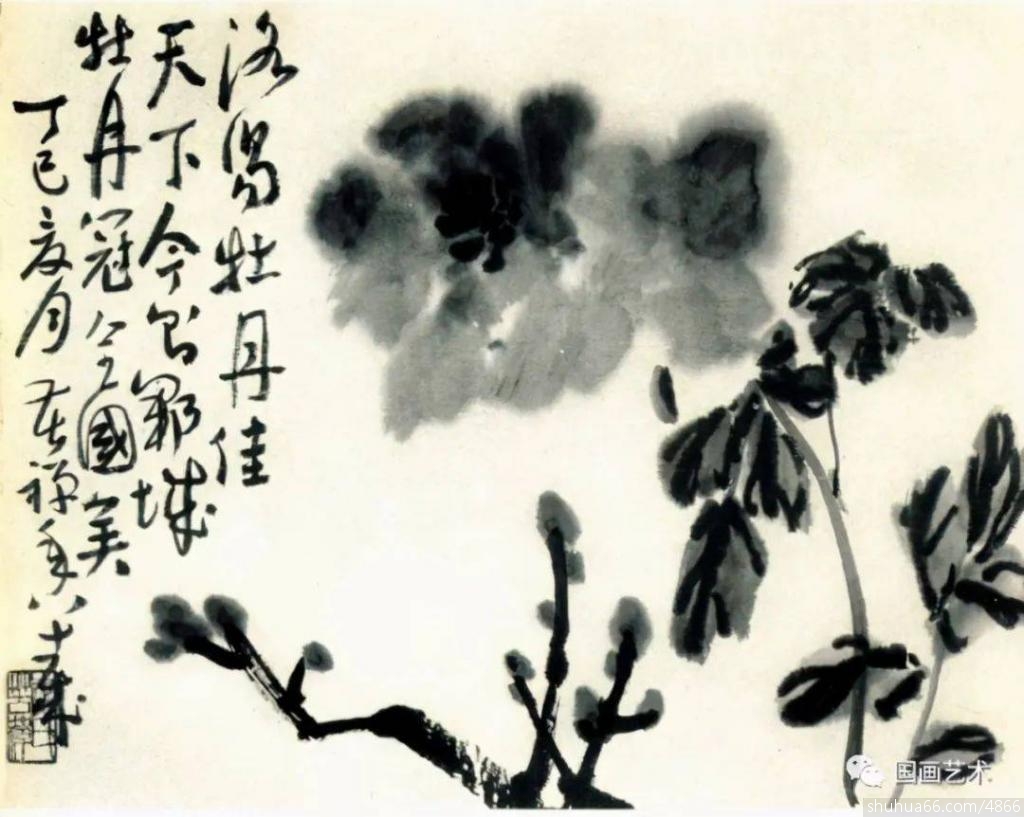 洛陽牡丹佳
天下今城
牡丹冠全國矣
丁巳夏月苦禅年八十歲
国画艺术
shuhua66.com/4866